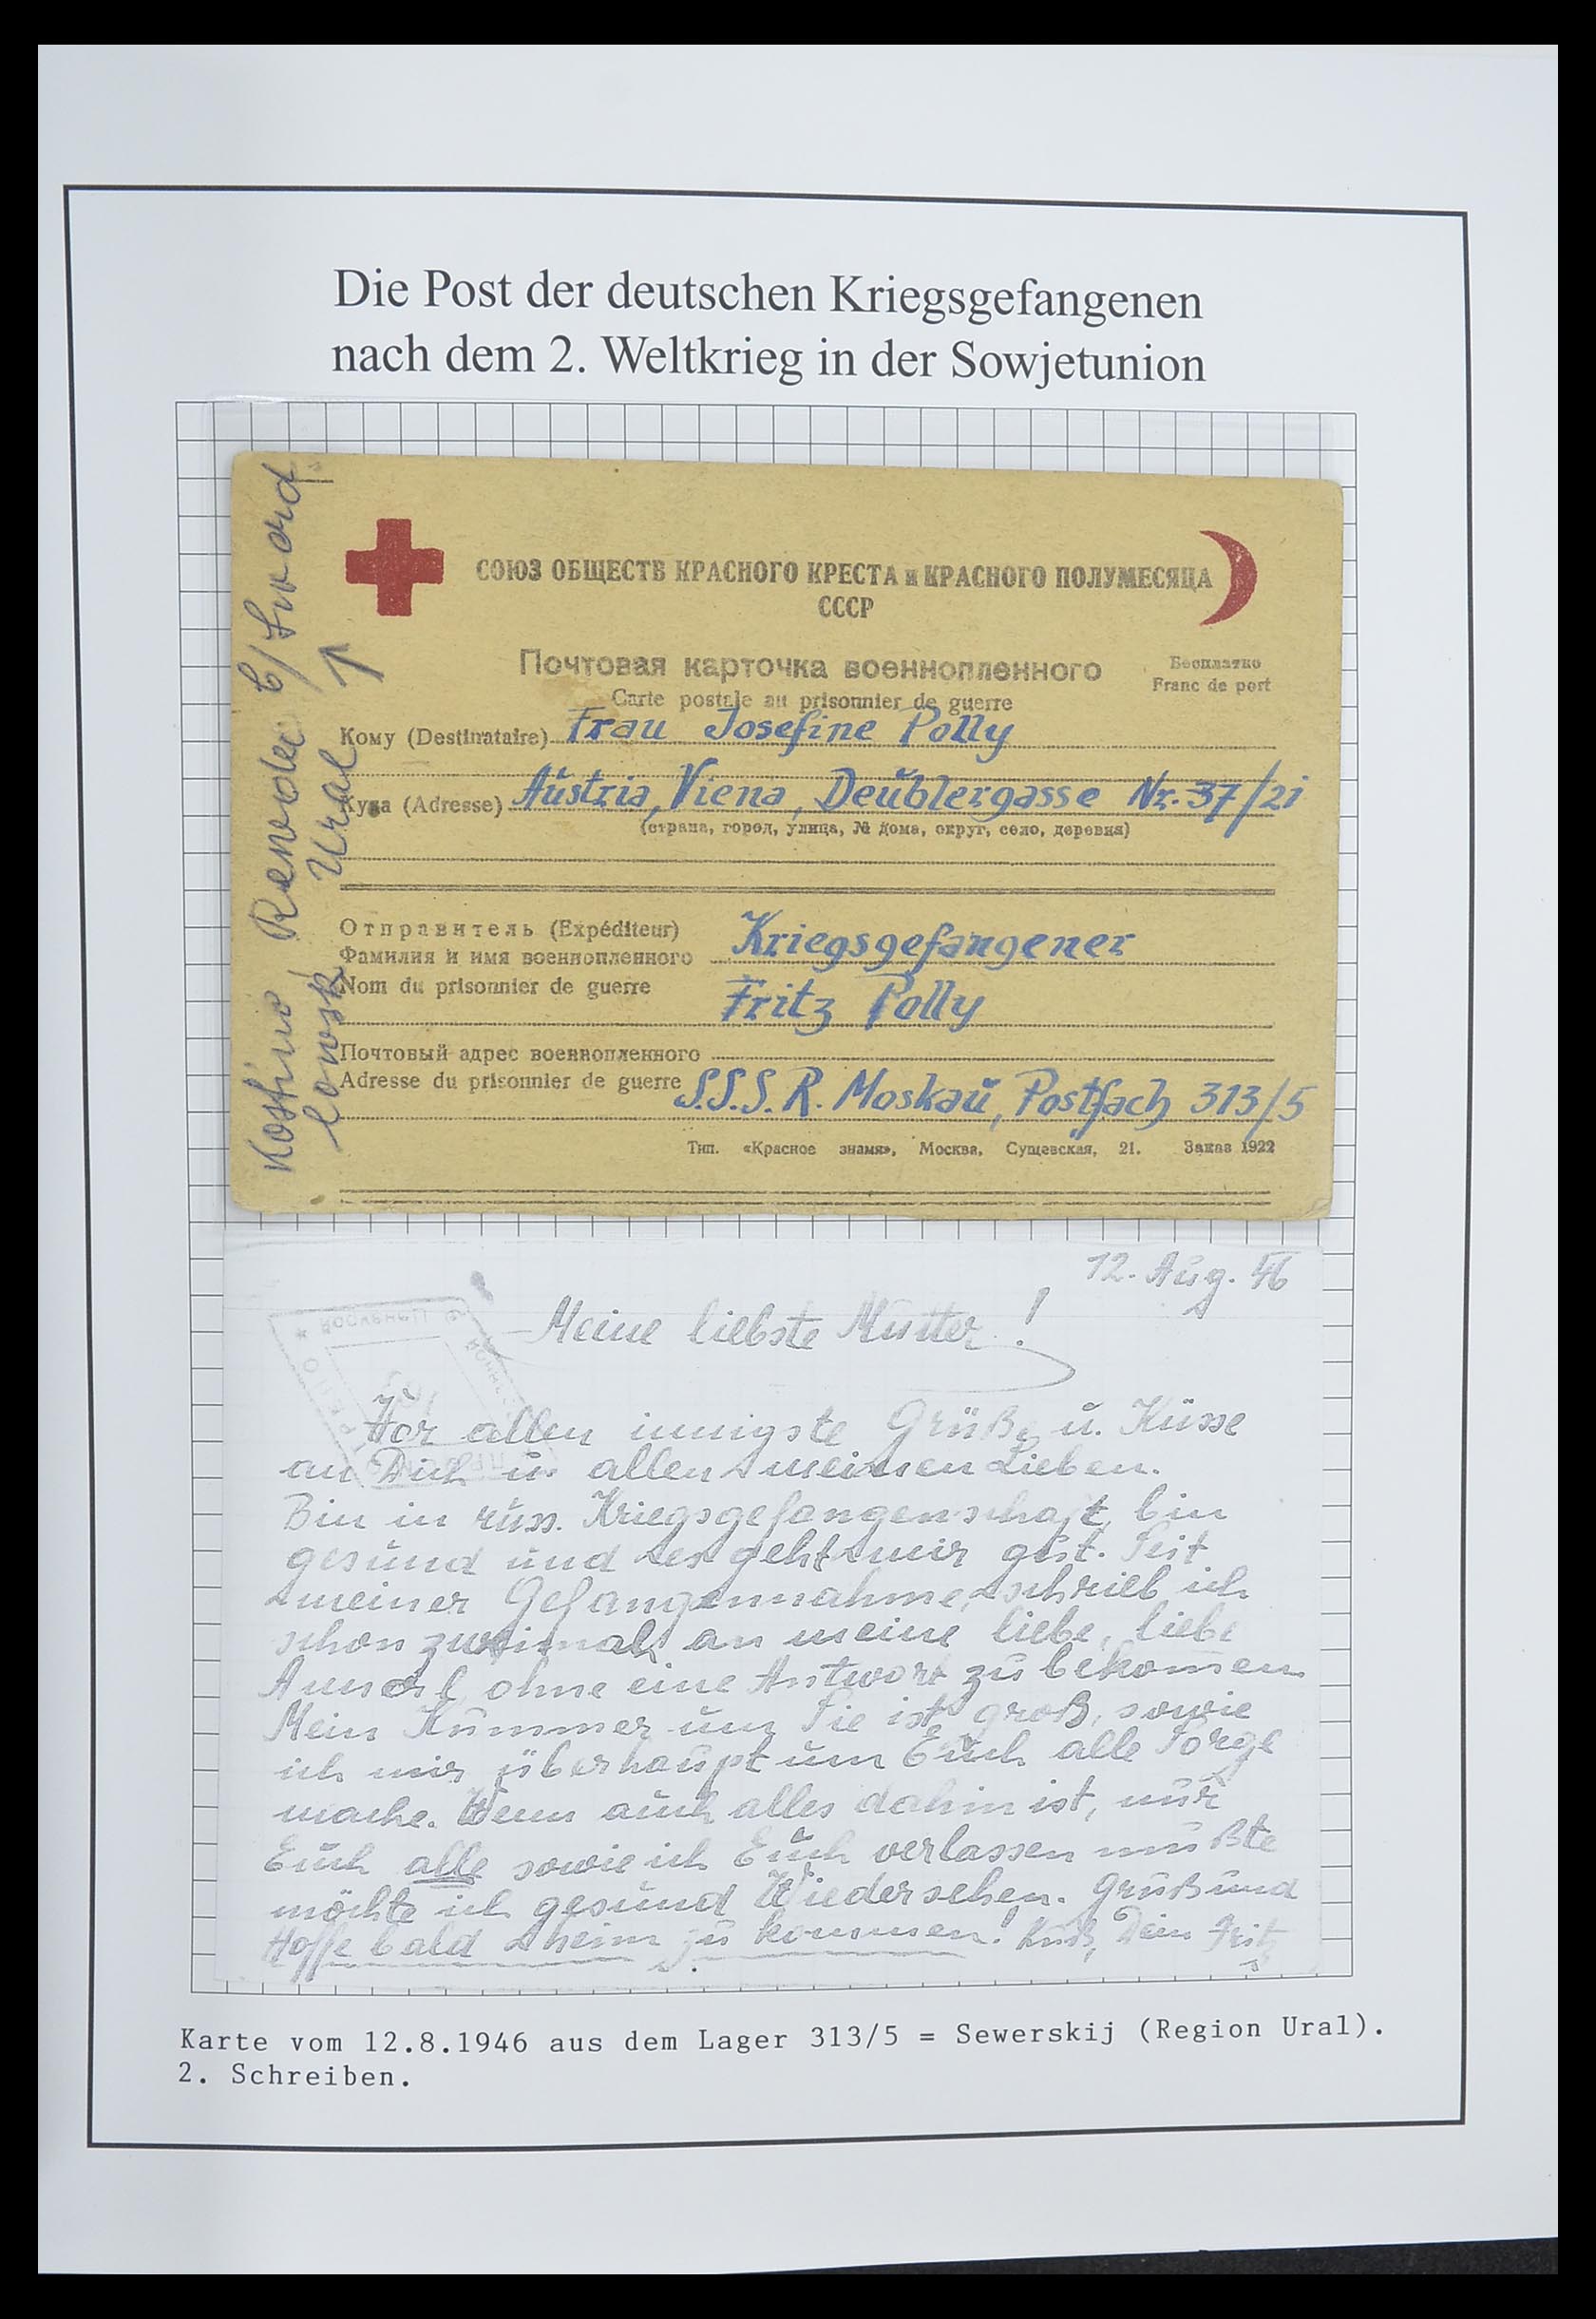 Die Post der deutschen Kriegsgefangenen
nach dem 2. Weltkrieg in der Sowjetunion
СОЮЗ ОБЩЕСТВ КРАСНОГО КРЕСТА и КРАСНОГО ПОЛУМЕСЯЦА
СССР
Почтовая карточка военнопленного
Бесплатно
Carte postale au prisonnier de guerre
Franc de port
Кому (Destinataire) Frau Josefine Polly
Куда (Adresse) Austria, Viena, Deublergasse Nr. 37/21
(страна, город, улица, № дома, округ, село, деревня)
Отправитель (Expéditeur)
Фамилия и имя военнопленного Kriegsgefangener
Nom du prisonnier de guerre Fritz Polly
Почтовый адрес военнопленного
Adresse du prisonnier de guerre S.S.S.R. Moskau, Postfach 313/5
Тип. «Красное знамя», Москва, Сущевская, 21. Заказ 1922
Ural
12. Aug. 46
Meine liebste Mutter!
Vor allen innigste Grüße u. Küsse
an Dich u. allen meinen Lieben.
Bin in russ. Kriegsgefangenschaft, bin
gesund und es geht mir gut. Seit
meiner Gefangennahme, schrieb ich
schon zweimal an meine liebe, liebe
ohne eine Antwort zu bekomen
Mein Kummer um Sie ist groß, sowie
ich mir überhaupt um Euch alle Sorge
mache. Wenn auch alles dahin ist, nur
Euch alle sowie ich Euch verlassen mußte
möchte ich gesund Wiedersehen. Gruß und
Hoffe bald heim zu kommen! Kuß, Dein Fritz
Karte vom 12.8.1946 aus dem Lager 313/5 = Sewerskij (Region Ural).
2. Schreiben.